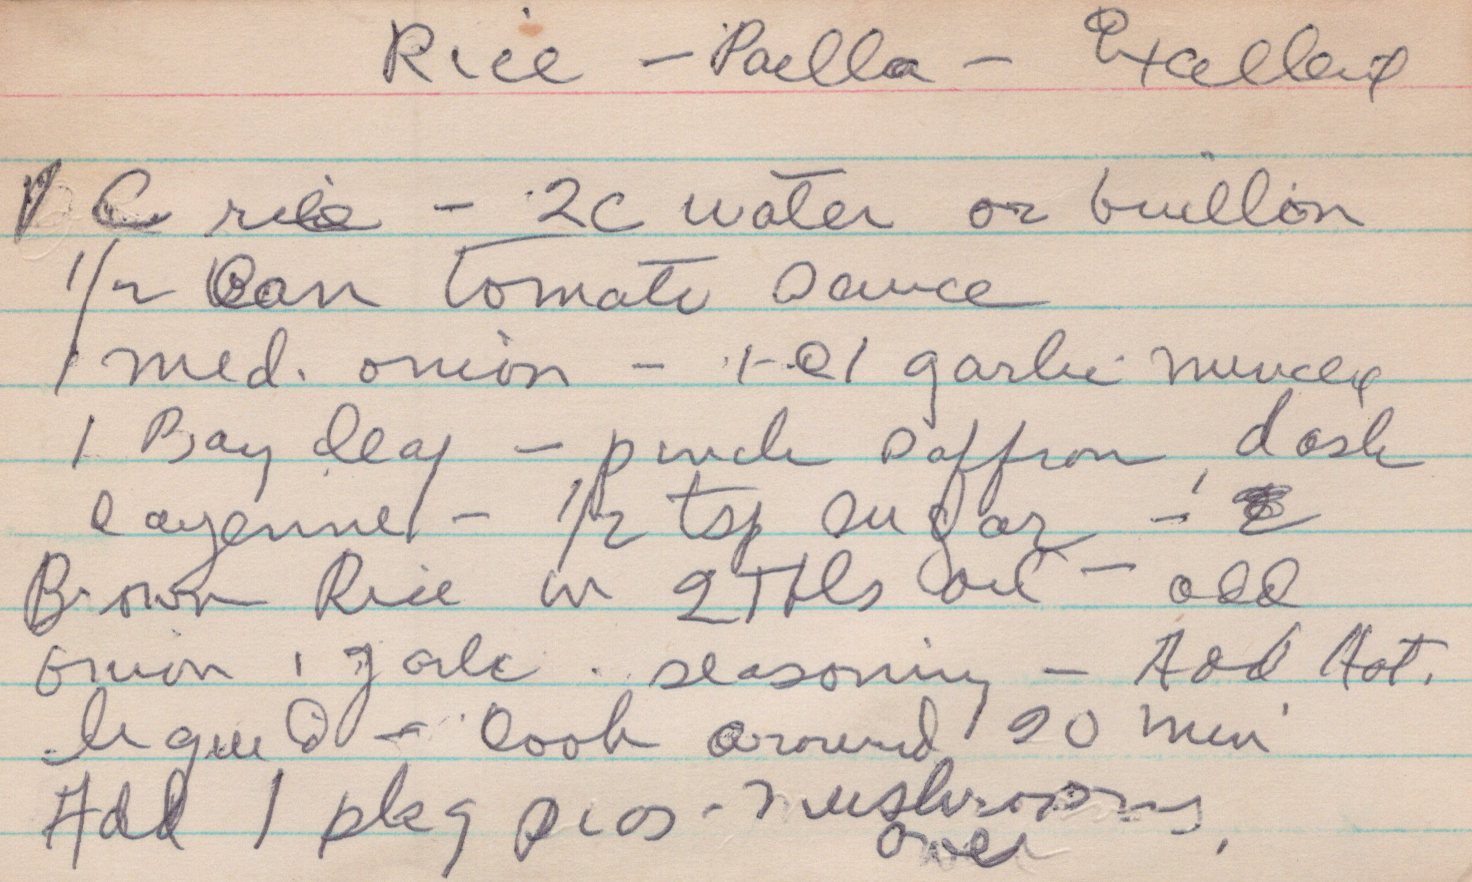 Rice - Paella - Excellent
1 C rice - 2C water or buillon
1/2 Can tomato sauce
1 med. onion - 1-cl garlic minced
1 Bay leaf - pinch saffron, dash
cayenne - 1/2 tsp sugar -
Brown Rice in 2 Tbls oil - add
onion, garlic. seasoning - Add Hot.
liquid - Cook around 20 min
Add 1 pkg peas - mushrooms,
over